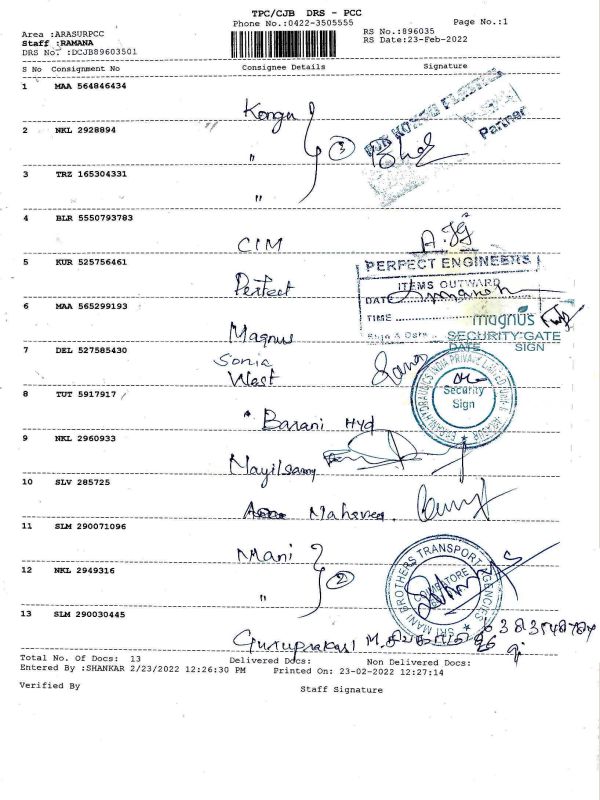 TPC/CJB DRS - PCC
Phone No.:0422-3505555
Page No.:1
Area :ARASURPCC
RS No.:896035
Staff :RAMANA
RS Date:23-Feb-2022
DRS No. :DCJB89603501
S No Consignment No Consignee Details Signature
1 MAA 564846434
Kongu
FOR KONGU
Partner
2 NKL 2928894
" 3
3 TRZ 165304331
"
4 BLR 5550793783
CIM
5 KUR 525756461
PERFECT ENGINEERS
ITEMS OUTWARD
Perfect
DATE
6 MAA 565299193
TIME
magnus
Magnus
Sign & Date
SECURITY GATE
DATE SIGN
7 DEL 527585430
Sonia
West
8 TUT 5917917
Security
Sign
Barani Hyd
9 NKL 2960933
Mayilsamy
10 SLV 285725
11 SLM 290071096
Mani
12 NKL 2949316
" 2
SRI MANI BROTHERS TRANSPORT AGENCIES
COIMBATORE
13 SLM 290030445
Guruprakash
Total No. Of Docs: 13 Delivered Docs: Non Delivered Docs:
Entered By :SHANKAR 2/23/2022 12:26:30 PM Printed On: 23-02-2022 12:27:14
Verified By Staff Signature